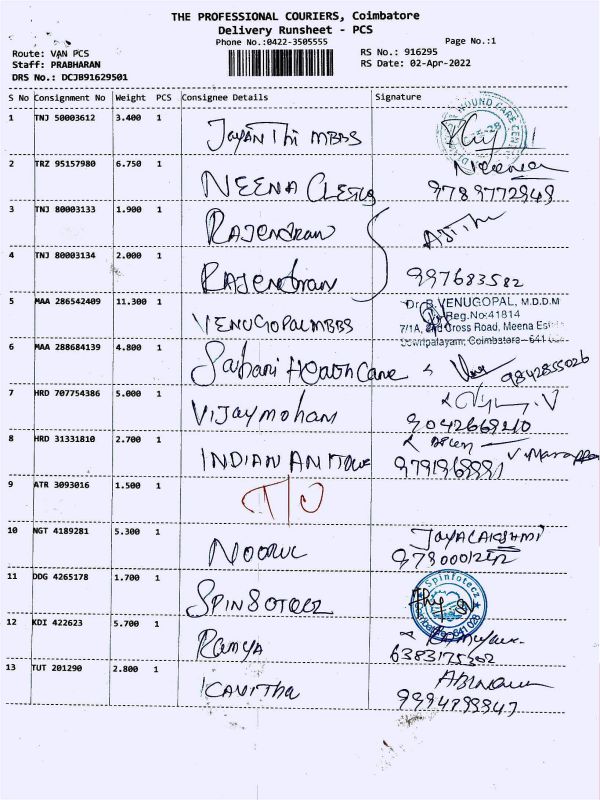 THE PROFESSIONAL COURIERS, Coimbatore
Delivery Runsheet - PCS
Phone No.:0422-3505555
Page No.:1
Route: VAN PCS
RS No.: 916295
Staff: PRABHARAN
RS Date: 02-Apr-2022
DRS No.: DCJB91629501
S No Consignment No Weight PCS Consignee Details Signature
1 TNJ 50003612 3.400 1 JayanThi MBBS
2 TRZ 95157980 6.750 1 NEENA Neena
9789772949
3 TNJ 80003133 1.900 1 RAJendran
4 TNJ 80003134 2.000 1 RAJendran 997683582
5 MAA 286542409 11.300 1 VENUGOPAL MBBS
Dr. B.VENUGOPAL, M.D.D.M
Reg.No:41814
7/1A, Cross Road, Meena
Sowripalayam, Coimbatore- 641
6 MAA 288684139 4.800 1 HealthCare 9842855026
7 HRD 707754386 5.000 1 VIJaymohan
8 HRD 31331810 2.700 1 INDIAN
9 ATR 3093016 1.500 1
10 NGT 4189281 5.300 1 NOORUL JayaLAKSHMI
11 DDG 4265178 1.700 1 Spinfotecz
12 KDI 422623 5.700 1 Ramya
6383175302
13 TUT 201290 2.800 1 KAVITHA